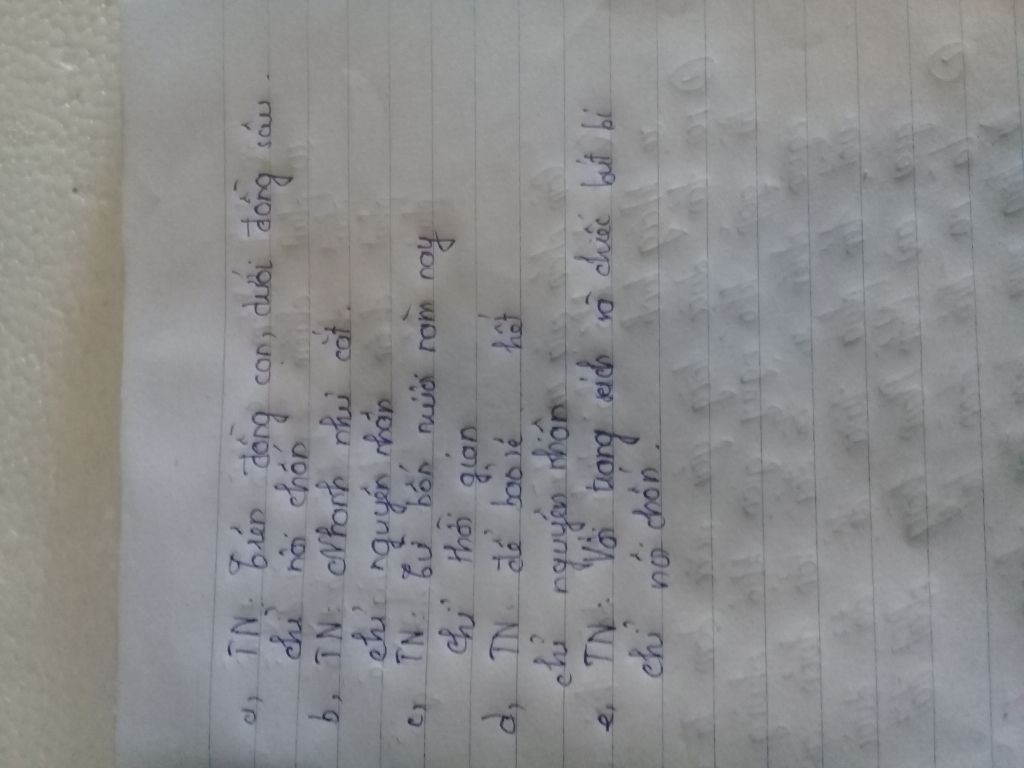 a, TN: Trên đồng cạn, dưới đồng sâu.
chỉ nơi chốn
b, TN: Nhanh như cắt.
chỉ nguyên nhân
c, TN: Từ bốn mươi năm nay
chỉ thời gian
d, TN: để bao lé hết
chỉ nguyên nhân
e, TN: Với trang sách và chiếc bút bi
chỉ nơi chốn.